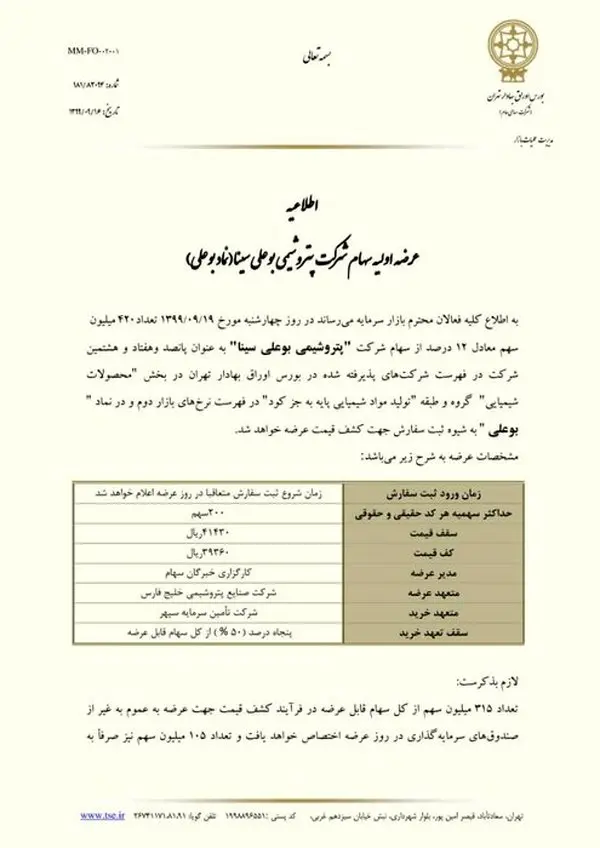 بسمه تعالی
MM-FO-۰۲۰۰۱
شماره: ۱۸۱/۸۲۰۹۴
تاریخ: ۱۳۹۹/۰۹/۱۶
بورس اوراق بهادار تهران
(شرکت سهامی عام)
مدیریت عملیات بازار
اطلاعیه
عرضه اولیه سهام شرکت پتروشیمی بوعلی سینا (نماد بوعلی)
به اطلاع کلیه فعالان محترم بازار سرمایه می‌رساند در روز چهارشنبه مورخ ۱۳۹۹/۰۹/۱۹ تعداد ۴۲۰ میلیون
سهم معادل ۱۲ درصد از سهام شرکت "پتروشیمی بوعلی سینا" به عنوان پانصد وهفتاد و هشتمین
شرکت در فهرست شرکت‌های پذیرفته شده در بورس اوراق بهادار تهران در بخش "محصولات
شیمیایی" گروه و طبقه "تولید مواد شیمیایی پایه به جز کود" در فهرست نرخ‌های بازار دوم و در نماد "
بوعلی " به شیوه ثبت سفارش جهت کشف قیمت عرضه خواهد شد.
مشخصات عرضه به شرح زیر می‌باشد:
زمان ورود ثبت سفارش زمان شروع ثبت سفارش متعاقبا در روز عرضه اعلام خواهد شد
حداکثر سهمیه هر کد حقیقی و حقوقی ۲۰۰سهم
سقف قیمت ۴۱۴۳۰ریال
کف قیمت ۳۹۳۶۰ریال
مدیر عرضه کارگزاری خبرگان سهام
متعهد عرضه شرکت صنایع پتروشیمی خلیج فارس
متعهد خرید شرکت تأمین سرمایه سپهر
سقف تعهد خرید پنجاه درصد (۵۰ %) از کل سهام قابل عرضه
لازم بذکرست:
تعداد ۳۱۵ میلیون سهم از کل سهام قابل عرضه در فرآیند کشف قیمت جهت عرضه به عموم به غیر از
صندوق‌های سرمایه‌گذاری در روز عرضه اختصاص خواهد یافت و تعداد ۱۰۵ میلیون سهم نیز صرفاً به
تهران، سعادت‌آباد، قیصر امین پور، بلوار شهرداری، نبش خیابان سیزدهم غربی، کد پستی: ۱۹۹۸۸۹۶۵۵۱ تلفن گویا: ۲۶۷۴۱۱۷۱،۸۱،۹۱ www.tse.ir